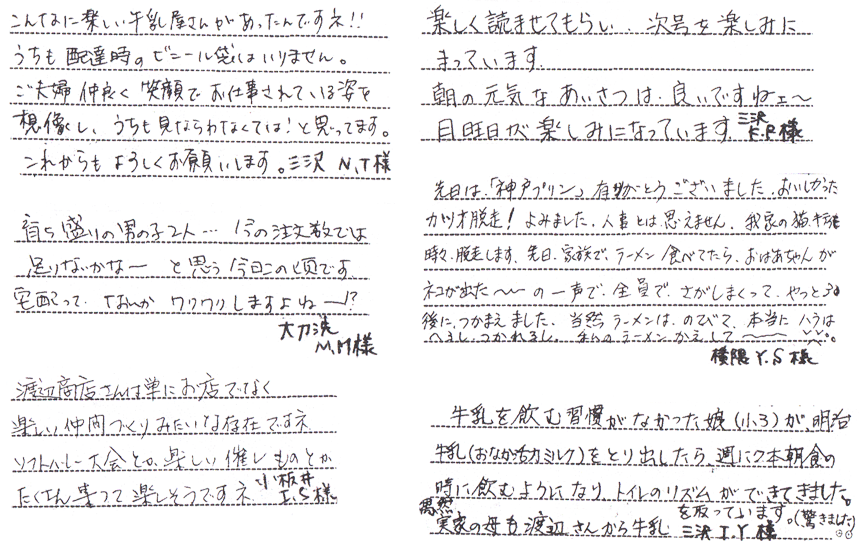 こんなに楽しい牛乳屋さんがあったんですネ!!
うちも配達時のビニール袋はいりません。
ご夫婦仲良く笑顔でお仕事されている姿を
想像し、うちも見ならわなくては!と思ってます。
これからもよろしくお願いします。三沢 N.T様
育ち盛りの男の子2人… 今の注文数では
足りないかな〜 と思う今日この頃です
宅配って、なんか ワクワクしますよね〜!?
大刀洗
M.M様
渡辺商店さんは単にお店でなく
楽しい仲間づくりみたいな存在ですネ
ソフトバレー大会とか、楽しい催しものとか
たくさん集って楽しそうですネ 小板井
I.S様
楽しく読ませてもらい、次号を楽しみに
まっています
朝の元気なあいさつは、良いですねェ〜
月曜日が楽しみになっています 三沢
K.R様
先日は、「神戸プリン」有難とうございました、おいしかった
カツオ脱走!よみました、人事とは思えません、我家の猫、
時々、脱走します、先日、家族で、ラーメン食べてたら、おばあちゃんが
ネコが出た〜〜の一声で、全員で、さがしまくって、やっと
後に、つかまえました、当然ラーメンは、のびて、本当にハラは
へるし、つかれるし、私のラーメンかえして〜〜
横隈 Y.S様
牛乳を飲む習慣がなかった娘(小3)が、明治
牛乳(おなか活力ミルク)をとり出したら、週に2本朝食の
時に飲むようになり、トイレのリズムができてきました。
偶然 を取っています。(驚きました)
実家の母も渡辺さんから牛乳 三沢 I.Y様